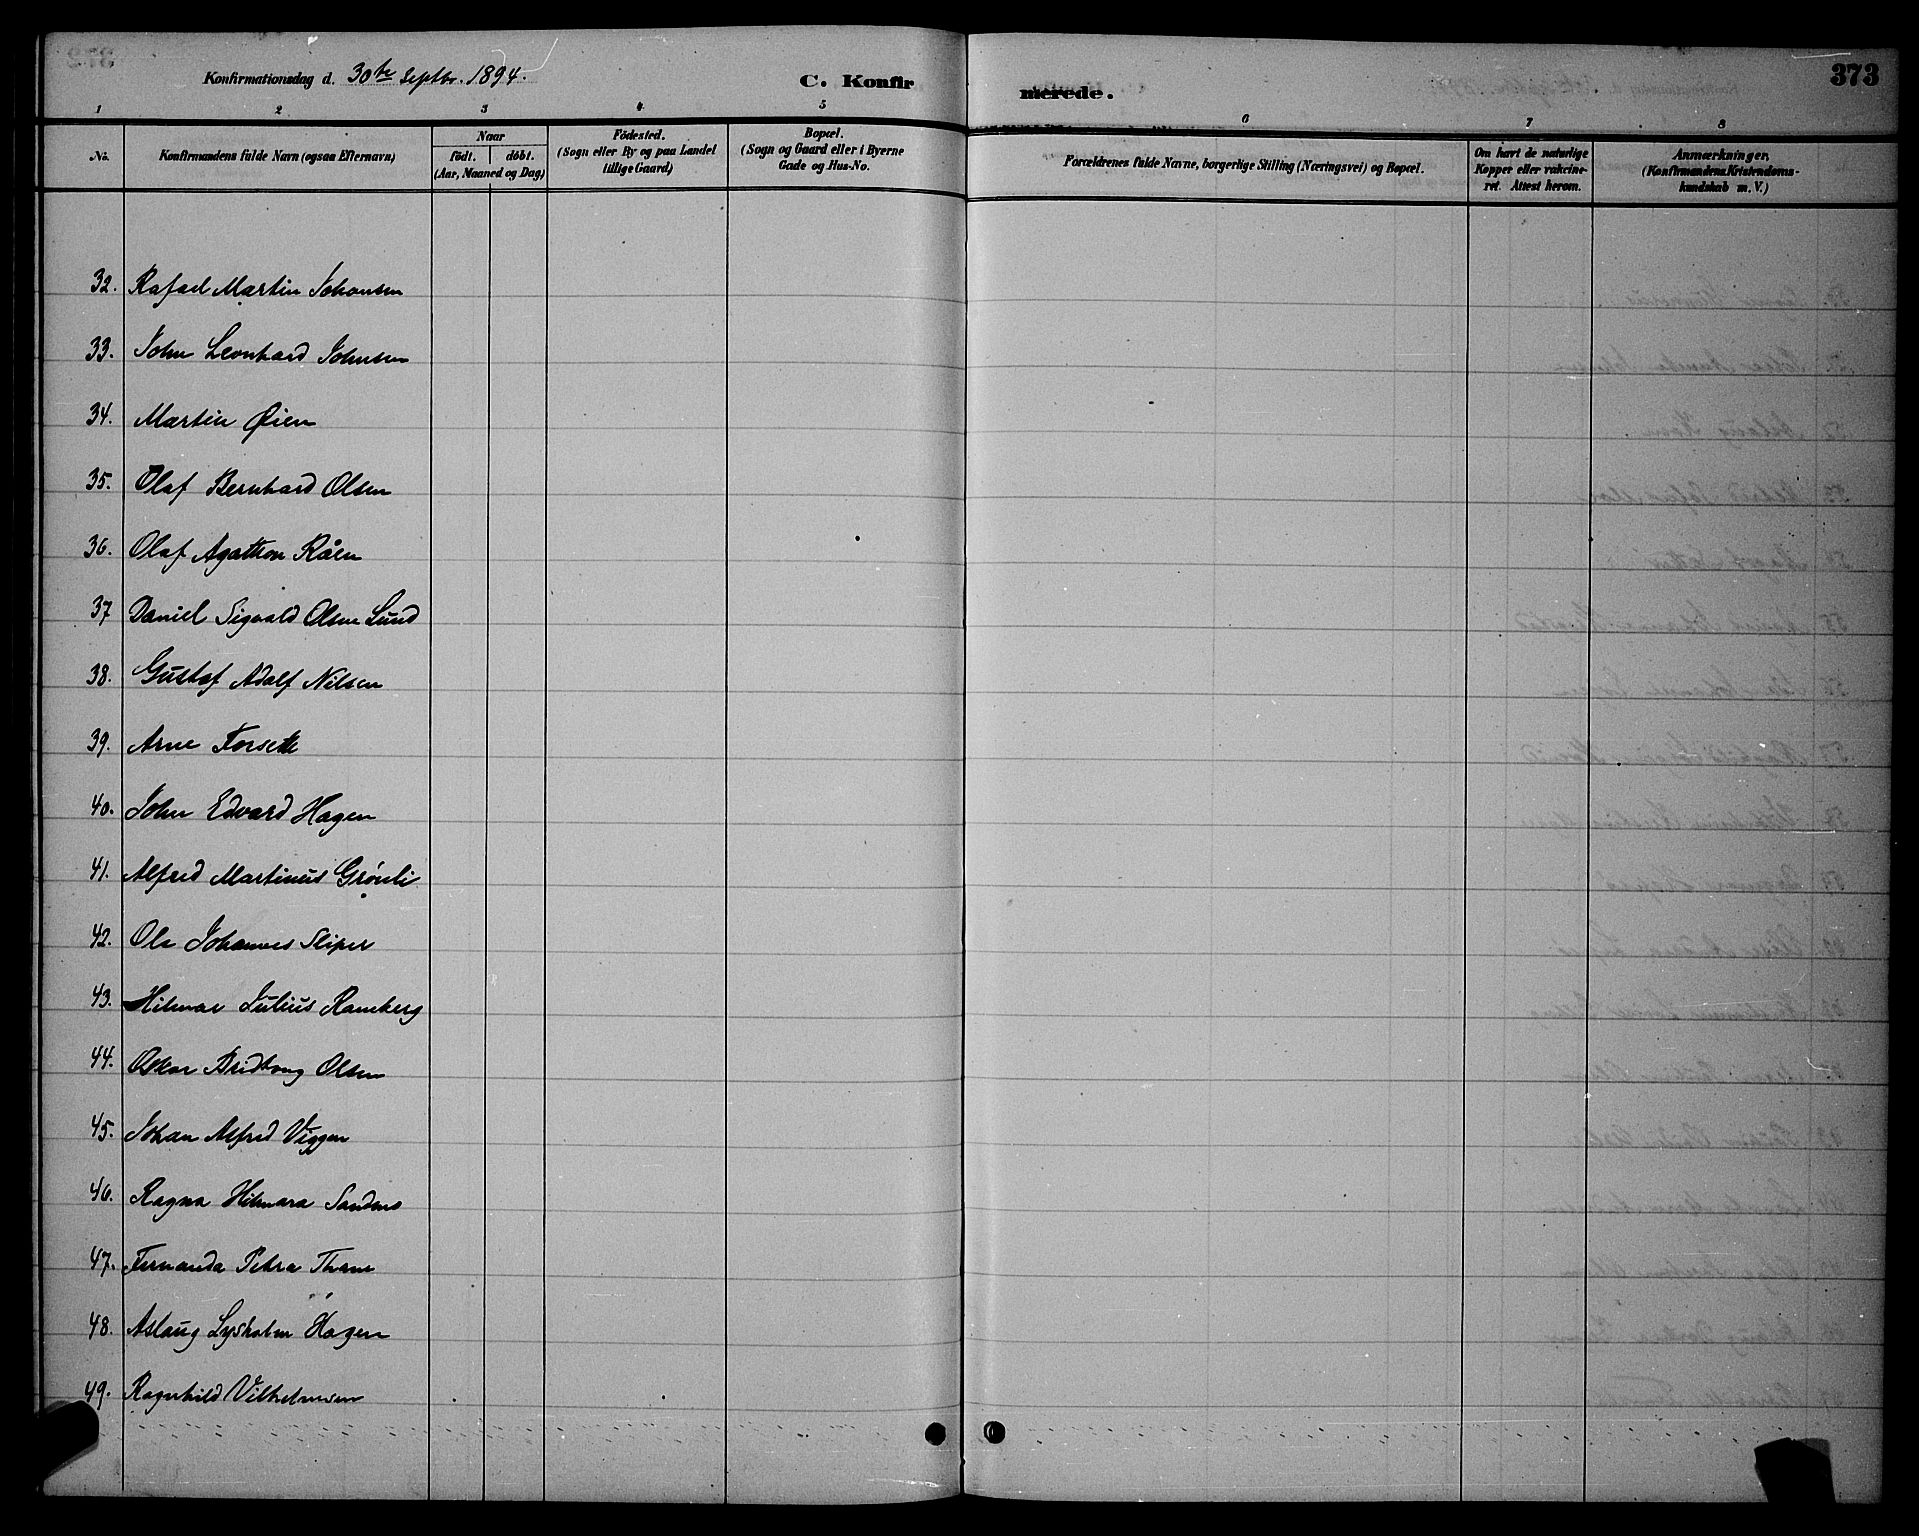 Konfirmationsdag d. 30te Septbr. 1894.
C. Konfirmerede.
373
1 2 3 4 5 6 7 8
No.
Konfirmandens fulde Navn (ogsaa Efternavn)
Naar
födt. döbt.
(Aar, Maaned og Dag)
Födested.
(Sogn eller By og paa Landet
tillige Gaard)
Bopæl.
(Sogn og Gaard eller i Byerne
Gade og Hus-No.
Forældrenes fulde Navne, borgerlige Stilling (Næringsvei) og Bopæl.
Om havt de naturlige
Kopper eller vakcine-
ret. Attest herom.
Anmærkninger.
(Konfirmandens Kristendoms-
kundskab m. V.)
32. Rafael Martin Johansen
33. John Leonhard Johnsen
34. Martin Øien
35. Olaf Bernhard Olsen
36. Olaf Agathon Råen
37 Daniel Sigvald Olsen Lund
38. Gustaf Adolf Nilsen
39. Arne Forseth
40. John Edvard Hagen
41. Alfred Martinus Grønli
42. Ole Johannes Sliper
43. Hilmar Julius Ramberg
44. Oskar Olsen
45. Johan Alfred Viggen
46. Ragna Hilmara
47. Fernanda Petra
48. Aslaug Lysholm Hagen
49. Ragnhild Vilhelmsen